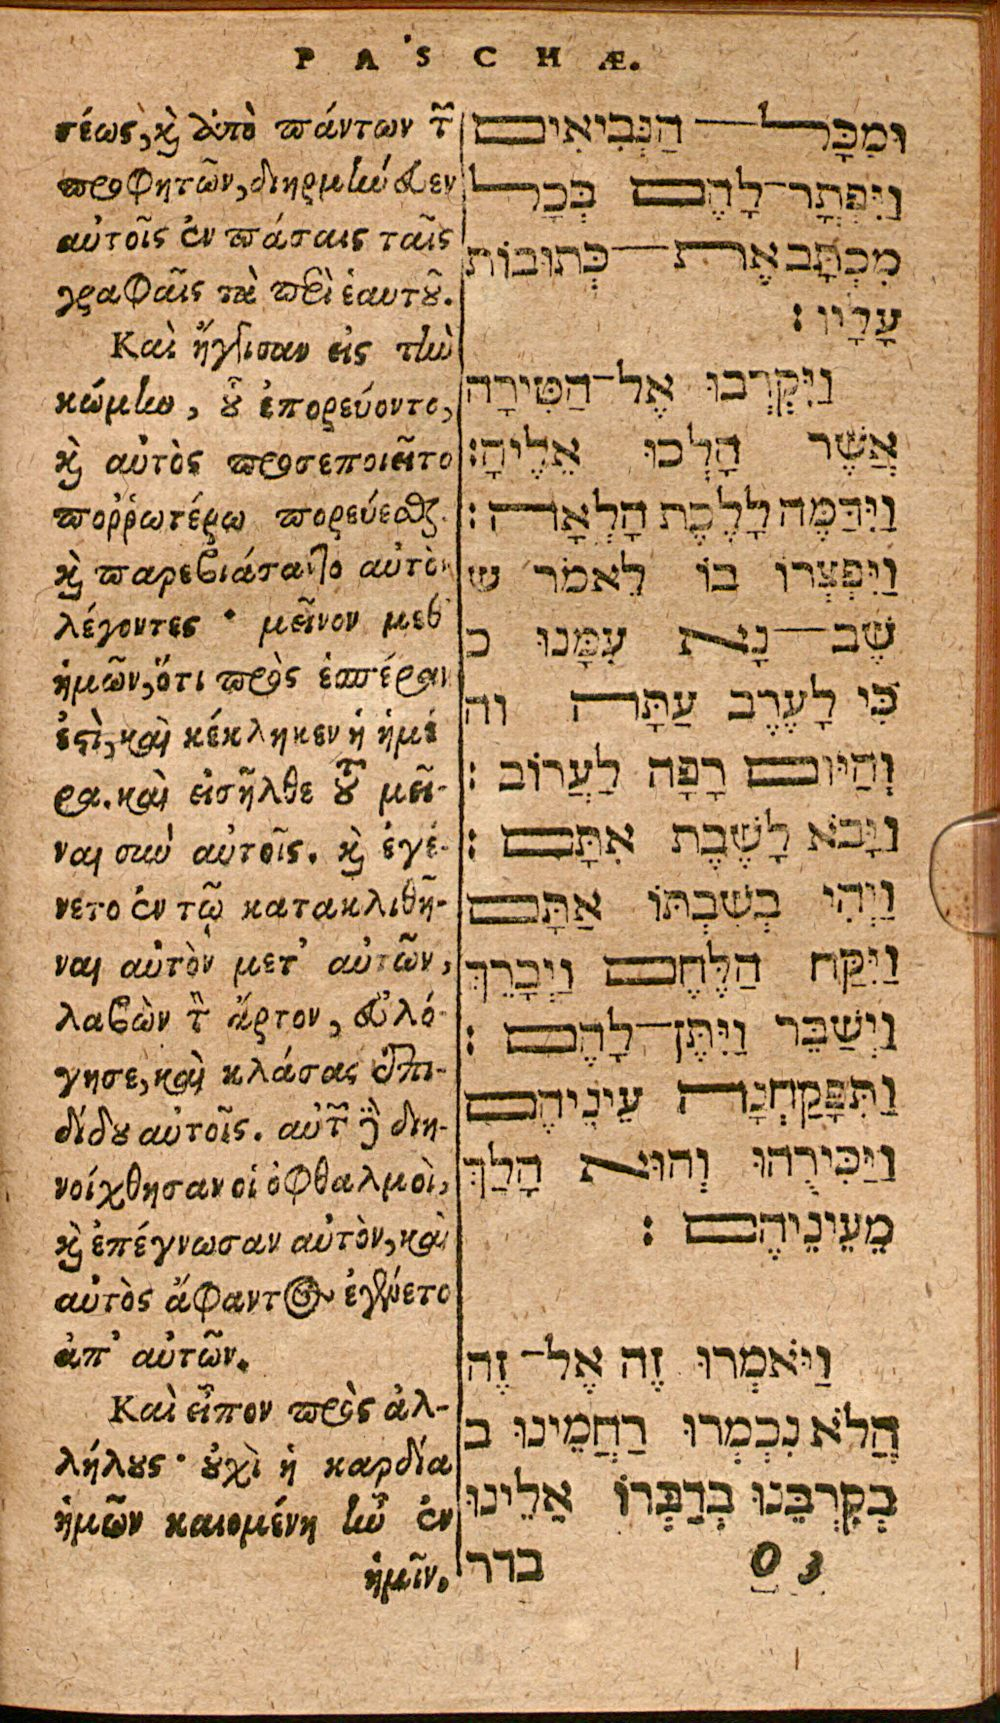 PASCHÆ.
σέως, κὴ ἀπὸ πάντων τ̃
προφητῶν, διηρμήνευεν
αὐτοῖς ἐν πάσαις ταῖς
γραφαῖς τὰ περὶ ἑαυτοῦ.
Καὶ ἤγγισαν εἰς τὴν
κώμην, οὗ ἐπορεύοντο,
κὴ αὐτὸς προσεποιεῖτο
ποῤῥωτέρω πορεύεσθαι.
κὴ παρεβιάσαντο αὐτὸν
λέγοντες · μεῖνον μεθ'
ἡμῶν, ὅτι πρὸς ἑσπέραν
ἐστὶ, καὶ κέκληκεν ἡ ἡμέ
ρα. καὶ εἰσῆλθε τοῦ μεῖ-
ναι σὺν αὐτοῖς. κὴ ἐγέ-
νετο ἐν τῷ κατακλιθῆ-
ναι αὐτὸν μετ' αὐτῶν,
λαβὼν τ̀ ἄρτον, εὐλό-
γησε, καὶ κλάσας ἐπι-
δίδου αὐτοῖς. αὐτ̃ δὲ διη-
νοίχθησαν οἱ ὀφθαλμοὶ,
κὴ ἐπέγνωσαν αὐτὸν, καὶ
αὐτὸς ἄφαντος ἐγένετο
ἀπ' αὐτῶν.
Καὶ εἶπον πρὸς ἀλ-
λήλους · οὐχὶ ἡ καρδία
ἡμῶν καιομένη ἦν ἐν
ἡμῖν,
וּמִכָּל הַנְּבִיאִים
וַיִּפְתָּר־לָהֶם בְּכָל
מִכְתָּב אֶת־כְּתוּבוֹת
עָלָיו :
וַיִּקְרְבוּ אֶל־הַטִּירָה
אֲשֶׁר הָלְכוּ אֵלֶיהָ:
וַיִּדַּמֶּה לָלֶכֶת הָלְאָה :
וַיִּפְצְרוּ בוֹ לֵאמֹר ש
שֶׁב־נָא עִמָּנוּ כ
כִּי לָעֶרֶב עַתָּה וה
וְהַיּוֹם רָפָה לַעֲרוֹב :
וַיָּבֹא לָשֶׁבֶת אִתָּם :
וַיְהִי בְשִׁבְתּוֹ אִתָּם
וַיִּקַּח הַלֶּחֶם וַיְבָרֵךְ
וַיְשַׁבֵּר וַיִּתֶּן־לָהֶם :
וַתִּפָּקַחְנָה עֵינֵיהֶם
וַיַּכִּירֻהוּ וְהוּא הָלַךְ
מֵעֵינֵיהֶם :
וַיֹּאמְרוּ זֶה אֶל־זֶה
הֲלֹא נִכְמְרוּ רַחֲמֵינוּ ב
בְּקִרְבֵּנוּ בְּדַבְּרוֹ אֵלֵינוּ
בדר
O 3